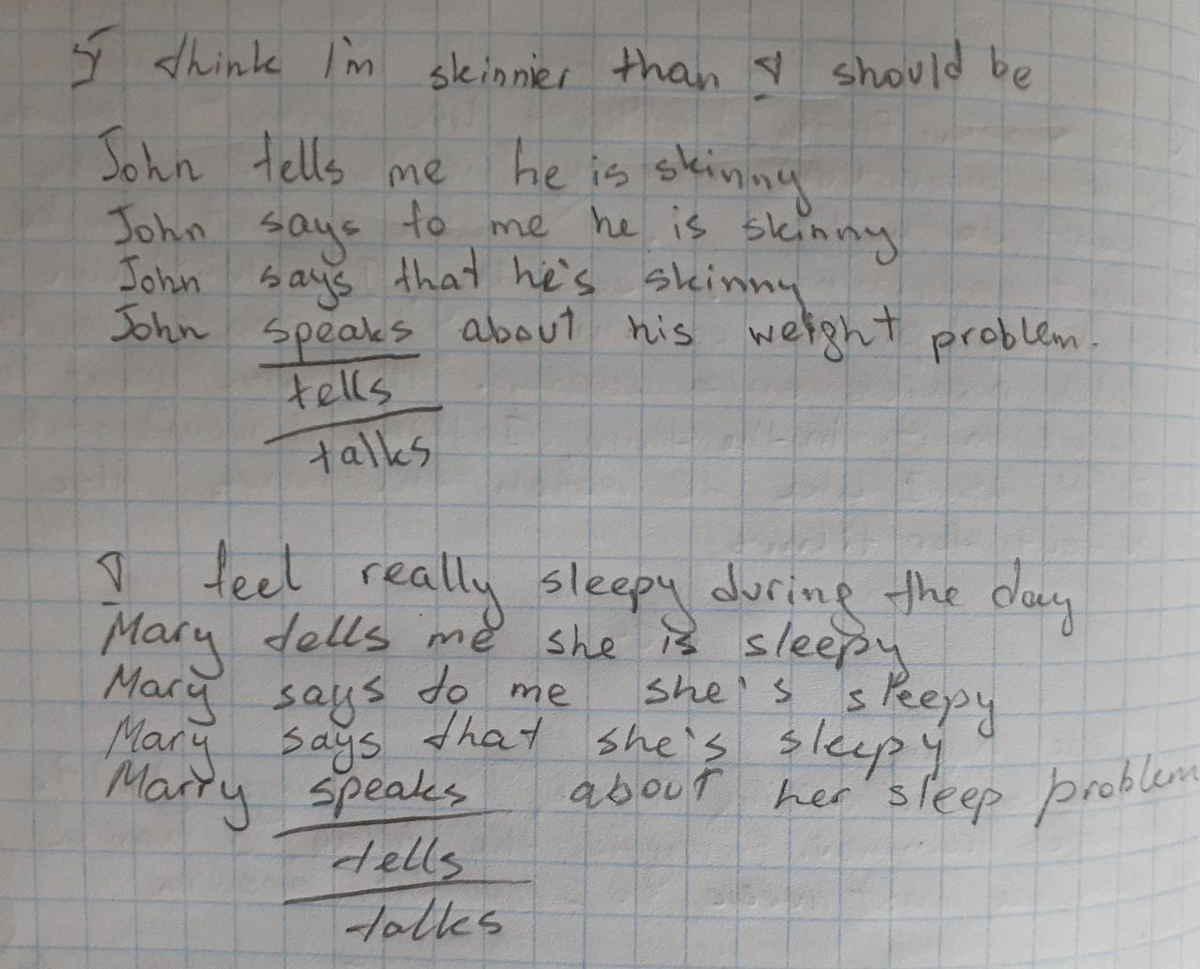 I think I'm skinnier than I should be
John tells me he is skinny
John says to me he is skinny
John says that he's skinny
John speaks about his weight problem.
tells
talks
I feel really sleepy during the day
Mary tells me she is sleepy
Mary says to me she's sleepy
Mary says that she's sleepy
Marry speaks about her sleep problem
tells
talks